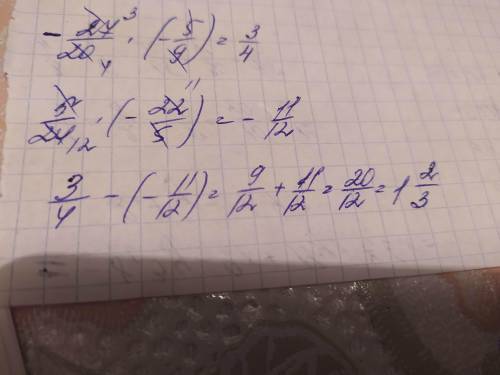 -27/20 · (-5/9) = 3/4
5/24 · (-22/5) = -11/12
3/4 - (-11/12) = 9/12 + 11/12 = 20/12 = 1 2/3